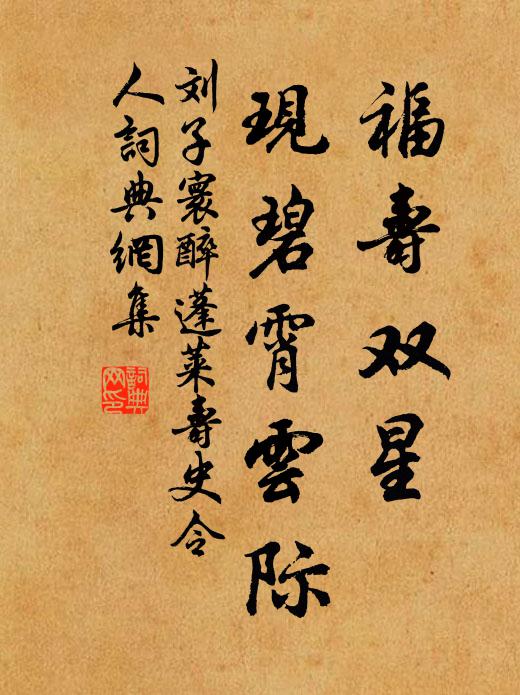 福寿双星
現碧霄雲际
刘子寰醉蓬莱寿史令
人詞典網集
詞典
网印